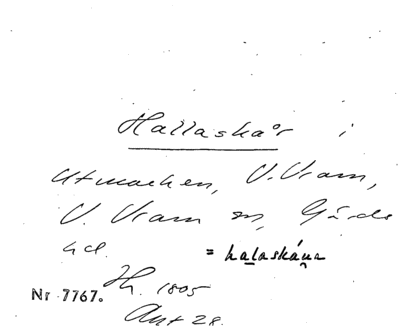 Hallaskår i
Utmarken, V. Vram,
V. Vram sn, Gärds
hd. = halaskáṇa
Nr 7767. Th. 1805
Ant 28.